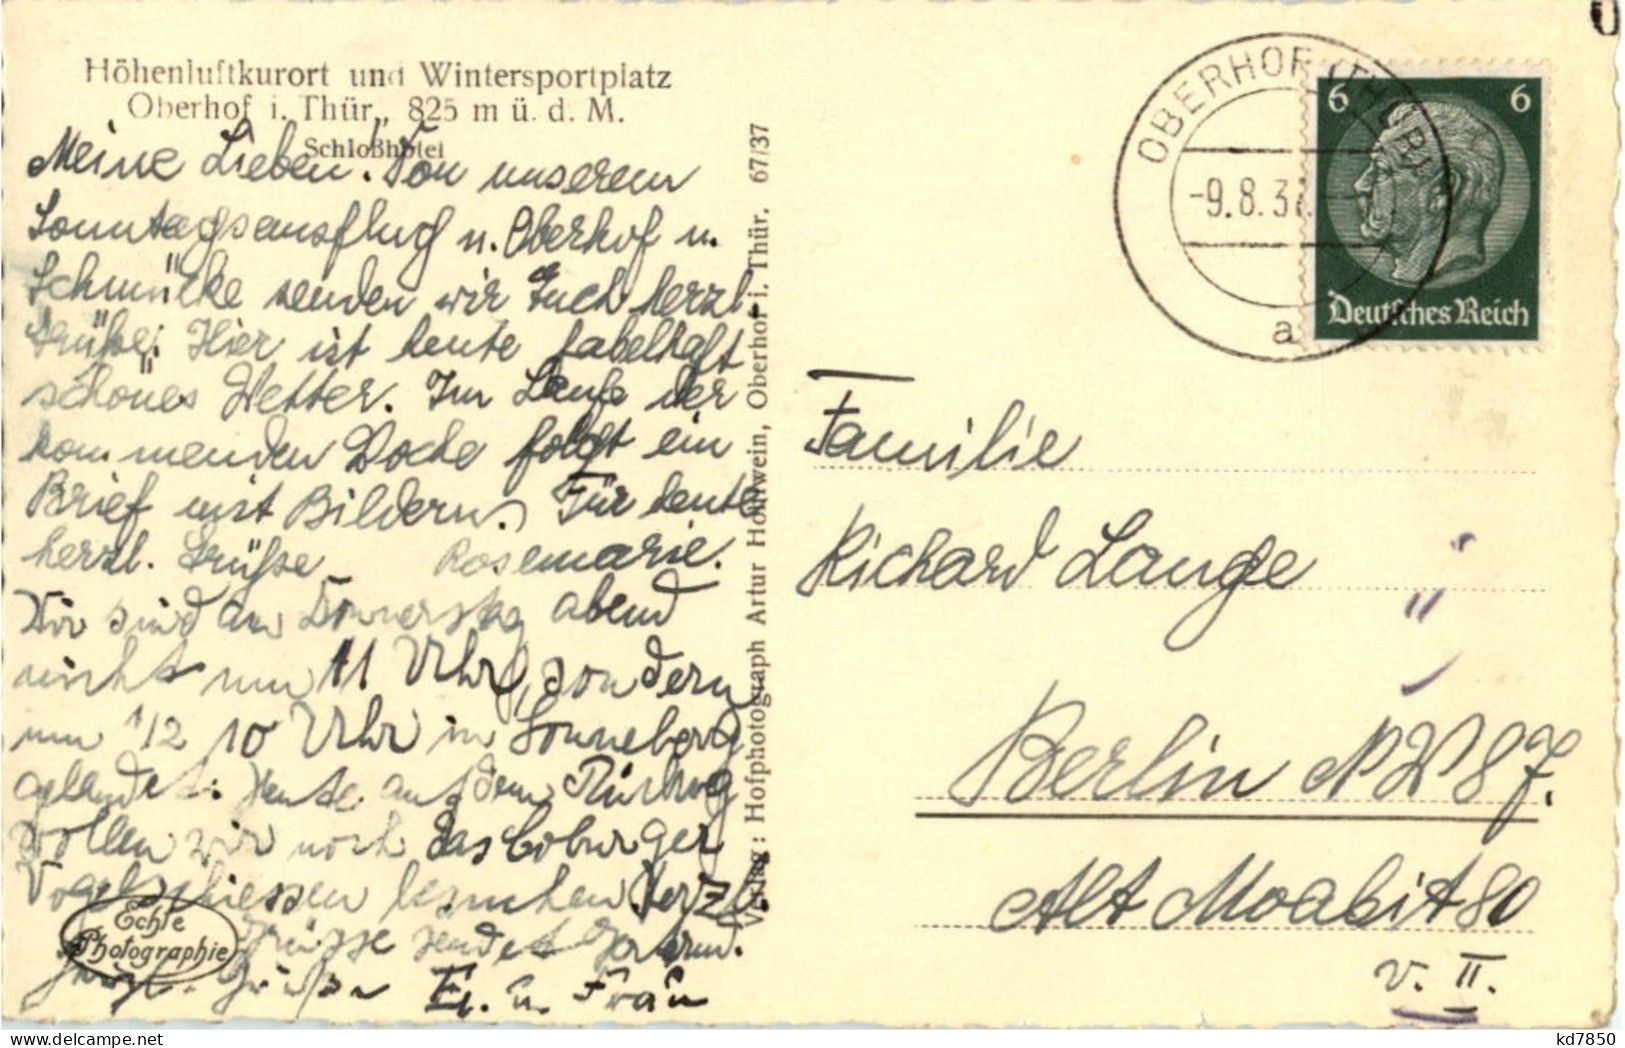 Höhenluftkurort und Wintersportplatz
Oberhof i. Thür., 825 m ü. d. M.
Schloßhotel
Meine Lieben! Von unserem
Sonntagsausflug n. Oberhof u.
Schmücke senden wir Euch herzl.
Grüße. Hier ist heute fabelhaft
schönes Wetter. Im Laufe der
kommenden Woche folgt ein
Brief mit Bildern. Für heute
herzl. Grüße Rosemarie.
Wir sind am Donnerstag abend
nicht um 11 Uhr, sondern
um 1/2 10 Uhr in Sonneberg
gelandet. Heute auf dem Rückweg
wollen wir noch das Coburger
Vogelschiessen besuchen. Herzl.
Grüsse sendet
Grüße u. Frau
Echte
Photographie
Verlag: Hofphotograph Artur Hollwein, Oberhof i. Thür. 67/37
OBERHOF (THÜR)
-9.8.37
a
6 6
Deutsches Reich
Familie
Richard Lange
Berlin NW 87.
Alt Moabit 80
v. II.
kd7850